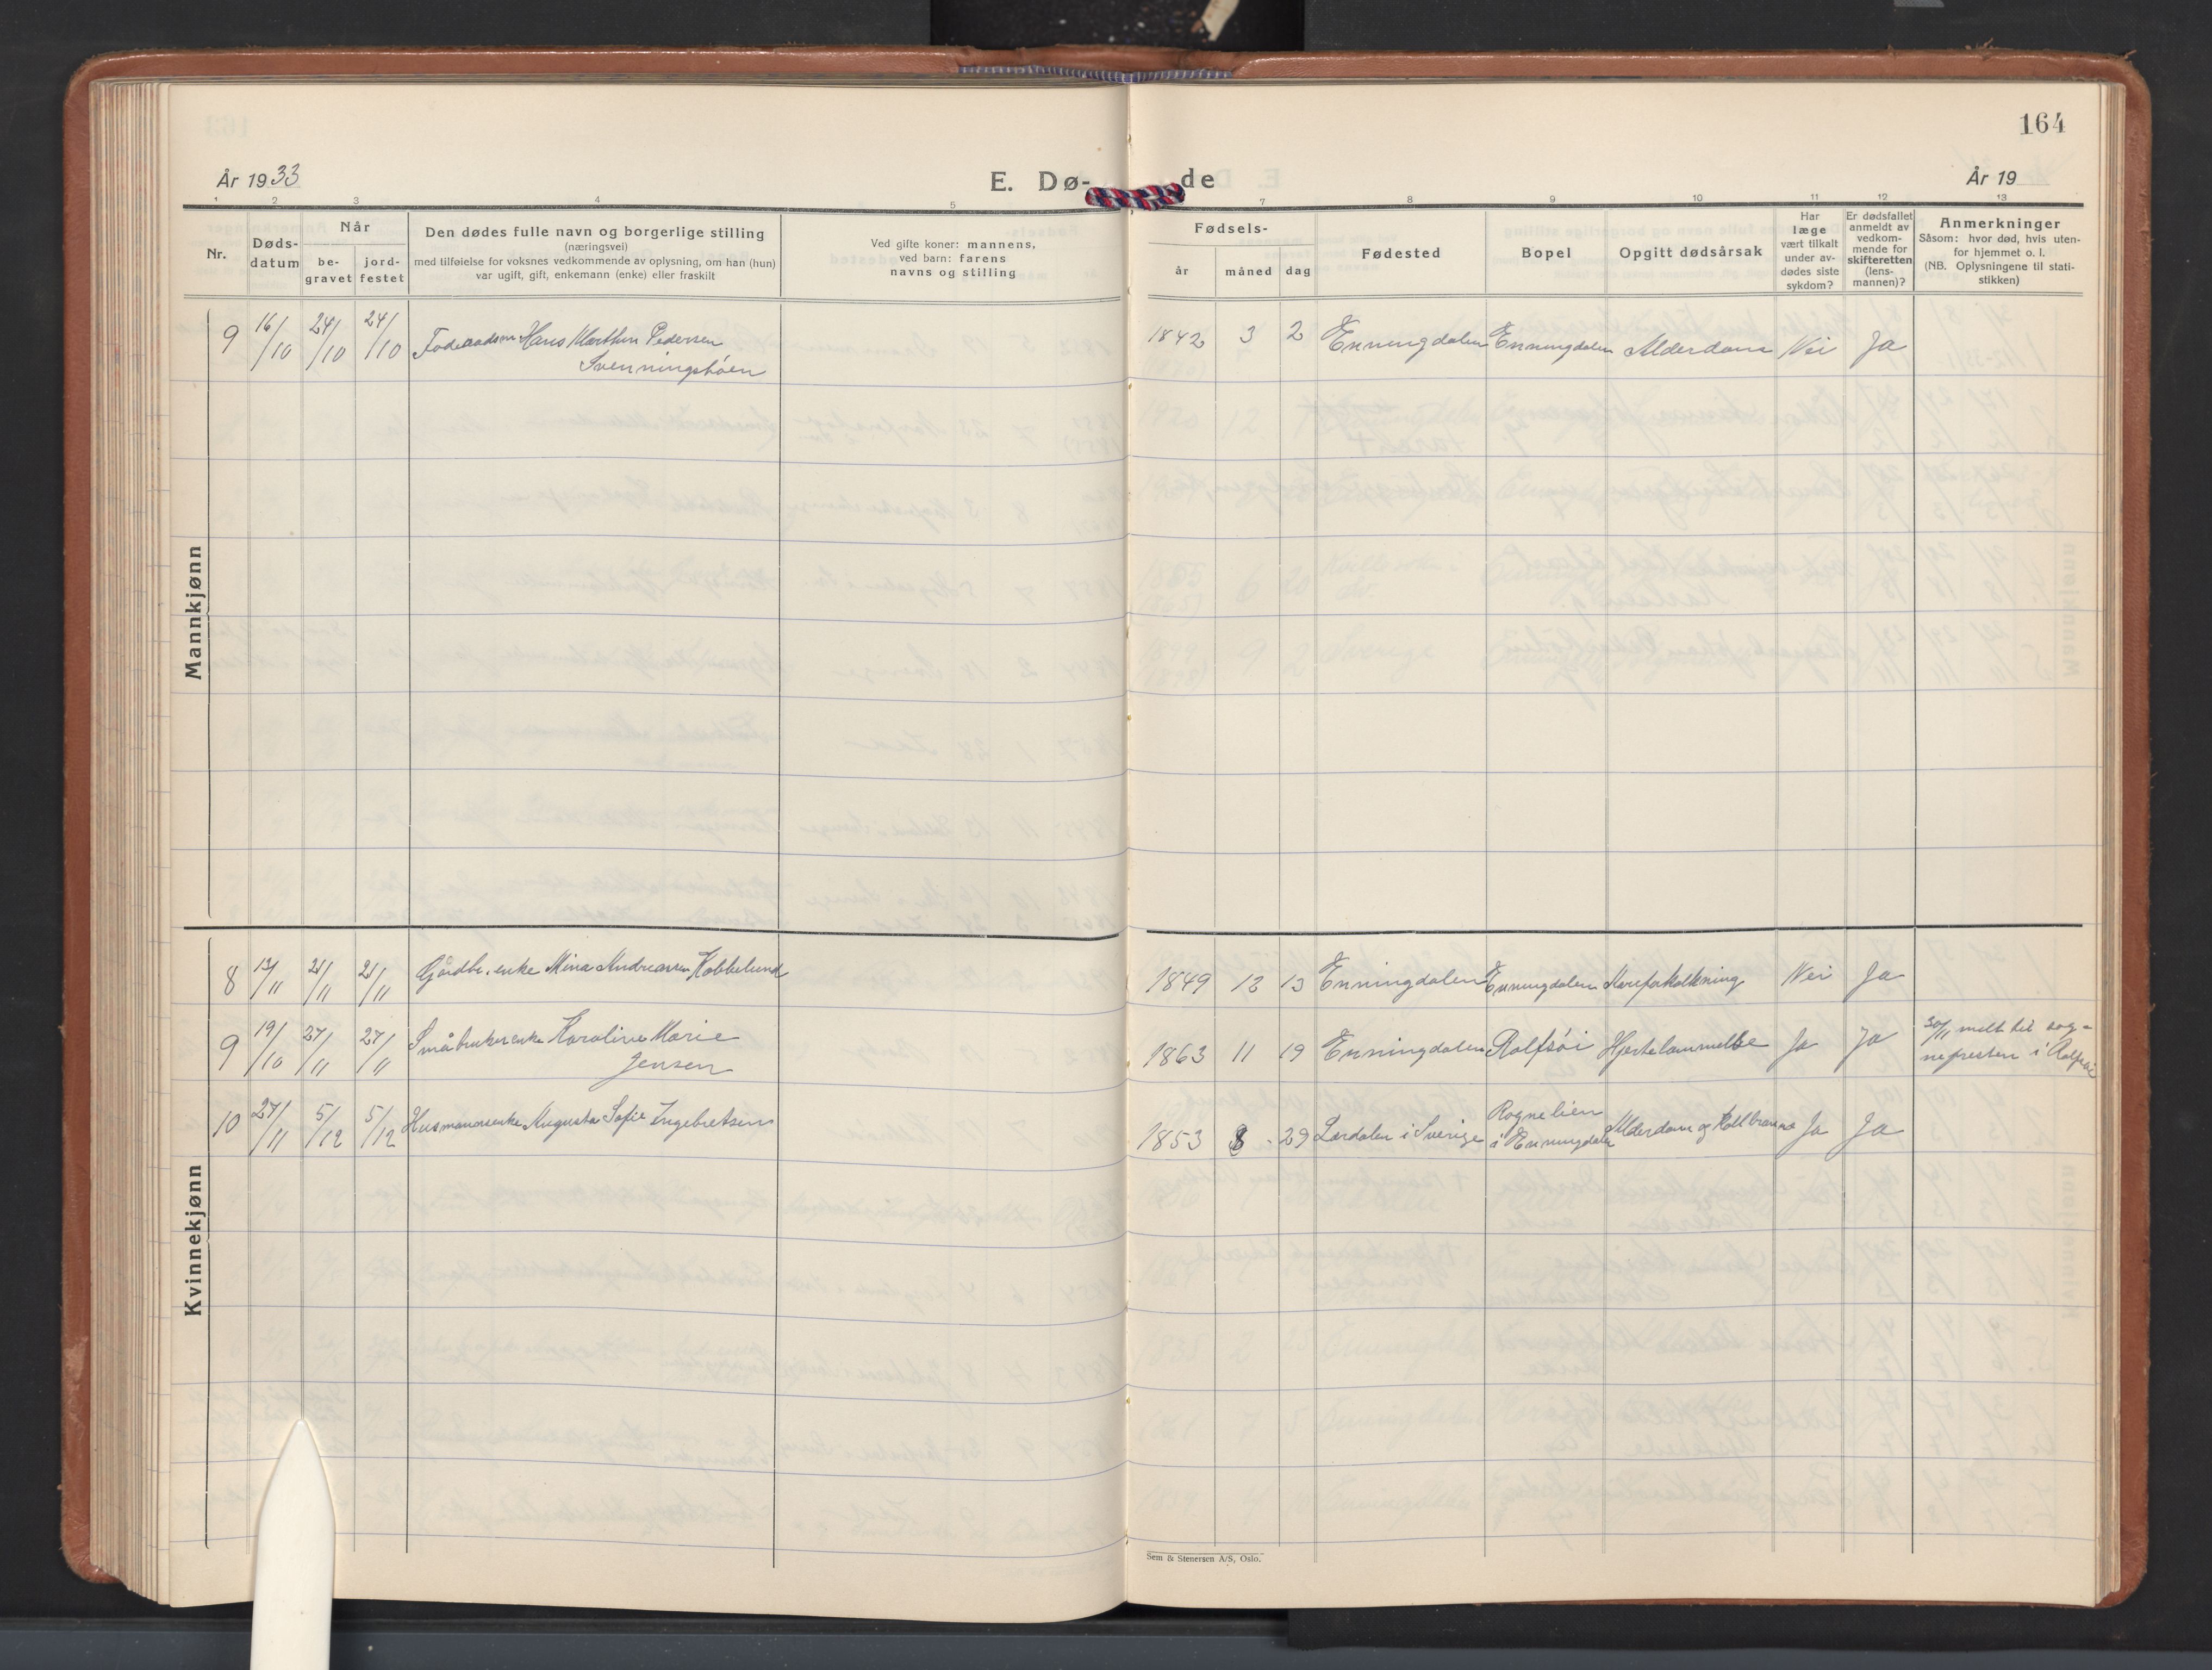 164
År 1933
E. Dø-
de
År 19
1 2 3 4 5 7 8 9 10 11 12 13
Nr.
Døds-
datum
Når
be-
gravet
jord-
festet
Den dødes fulle navn og borgerlige stilling
(næringsvei)
med tilføielse for voksnes vedkommende av oplysning, om han (hun)
var ugift, gift, enkemann (enke) eller fraskilt
Ved gifte koner: mannens,
ved barn: farens
navns og stilling
Fødsels-
år
måned
dag
Fødested
Bopel
Opgitt dødsårsak
Har
læge
vært tilkalt
under av-
dødes siste
sykdom?
Er dødsfallet
anmeldt av
vedkom-
mende for
skifteretten
(lens-
mannen)?
Anmerkninger
Såsom: hvor død, hvis uten-
for hjemmet o. l.
(NB. Oplysningene til stati-
stikken)
Mannkjønn
9 16/10 24/10 24/10 Hans Marthin Pedersen
Svenningsbøen
1842 3 2 Enningdalen Enningdalen Alderdom Nei Ja
Kvinnekjønn
8 13/11 21/11 21/11 Gårdbr. enke Mina Andreassen Kobbelund
1849 12 13 Enningdalen Enningdalen Åreforkalkning Nei Ja
9 19/10 27/11 27/11 Småbrukerenke Karoline Marie
Jensen
1863 11 19 Enningdalen Rolfsøi Hjertelammelse Ja Ja
30/11 meldt til sog-
nepresten i Rolfsøi
10 27/11 5/12 5/12 Husmannsenke Augusta Sofie Ingebretsen
1853 8 29 Lardalen i Sverige
Rognelien
i Enningdalen
Alderdom og Koldbranne Ja Ja
Sem & Stenersen A/S, Oslo.